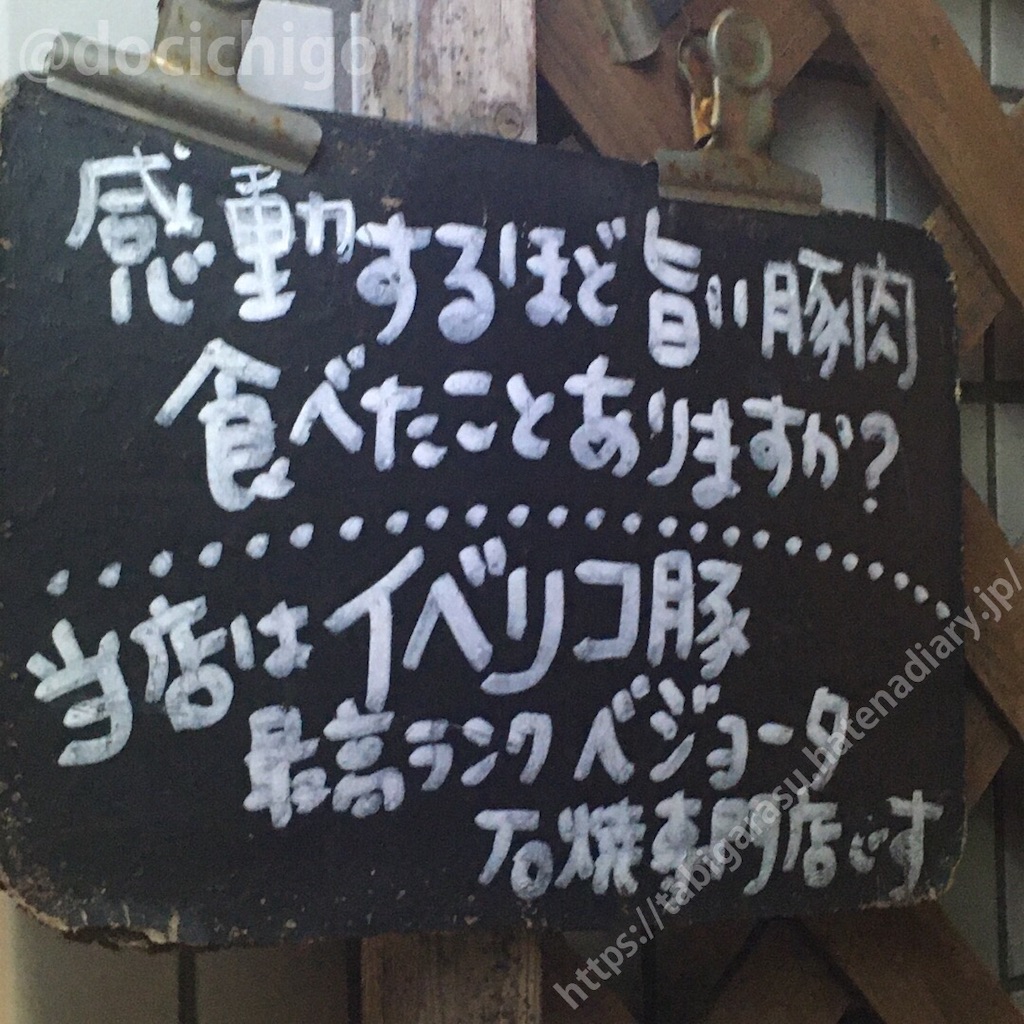 @docichigo
感動するほど旨い豚肉
食べたことありますか?
当店はイベリコ豚
最高ランクベジョータ
石焼専門店です
https://tabigarasu.hatenadiary.jp/